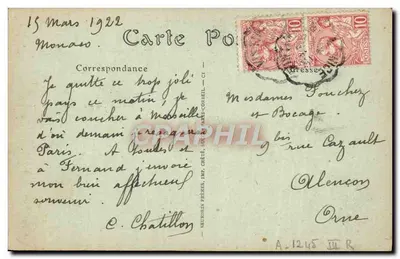 15 Mars 1922
Monaco
Carte Pos
Correspondance
Je quitte ce trop joli
pays ce matin, je
vais coucher à Marseille
d'où demain
Paris. A Toutes et
à Fernand j'envoie
mon bien affectueux
souvenir.
C. Chatillon
10
10
Adresse
Mesdames Souchez
et Bocage
9 bis rue Cazault
Alençon
Orne
A-1245 III R